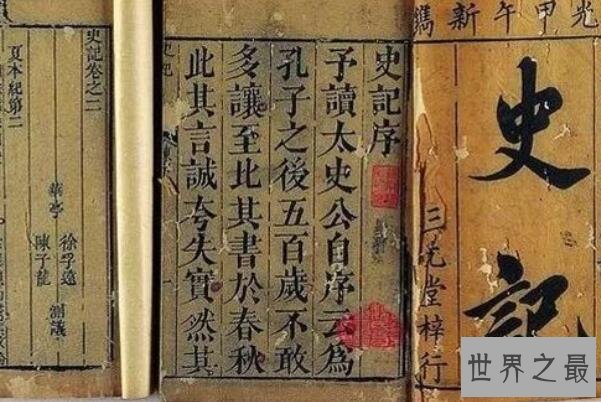 光甲午新鐫
史記
三元堂梓行
史記序
予讀太史公自序云為
孔子之後五百歲不敢
多讓至比其書於春秋
此其言誠夸失實然其
史記
史記卷之二
夏本紀第二
華亭
徐孚遠
陳子龍
測議
世界之最